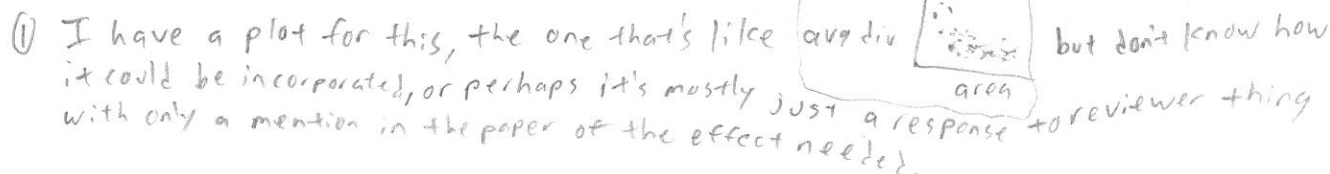 ① I have a plot for this, the one that's like avg div area but don't know how
it could be incorporated, or perhaps it's mostly just a response to reviewer thing
with only a mention in the paper of the effect needed.